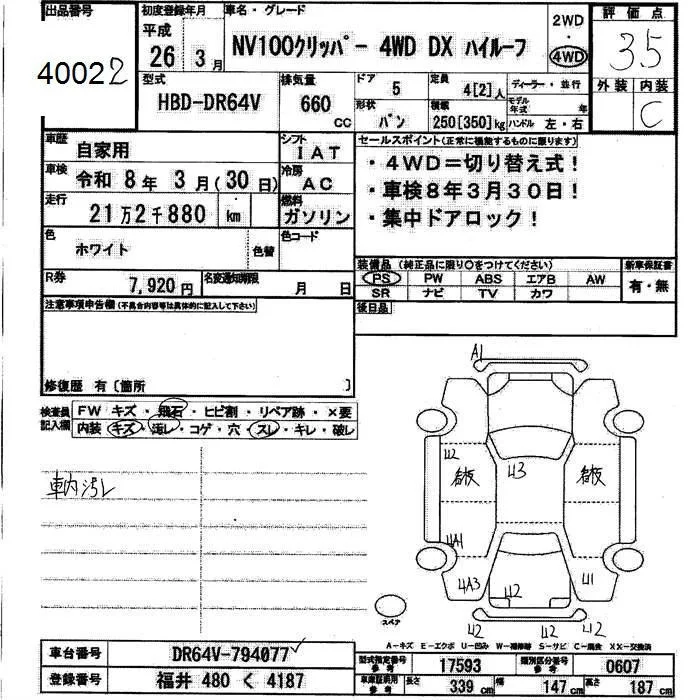 出品番号
40022
初度登録年月
平成
26年 3月
車名・グレード
NV100クリッパー 4WD DX ハイルーフ
2WD
・
4WD
評価点
3.5
外装 内装
C
型式
HBD-DR64V
排気量
660
CC
ドア
5
定員
4[2]人
ディーラー・並行
形状
バン
積載
250[350]kg
モデル年式 年
ハンドル 左・右
車歴
自家用
シフト
IAT
車検
令和 8年 3月(30日)
冷房
AC
走行
21万2千880 km
燃料
ガソリン
色
ホワイト
色替
色コード
R券
7,920円
名変通知期限
月 日
セールスポイント(正常に機能するものに限ります)
・4WD=切り替え式!
・車検8年3月30日!
・集中ドアロック!
装備品 (純正品に限り○をつけてください)
PS PW ABS エアB AW
SR ナビ TV カワ
新車保証書
有・無
後日品
注意事項申告欄(不具合内容等は具体的に記入して下さい)
修復歴 有〔箇所 〕
検査員記入欄
FW キズ・飛石・ヒビ割・リペア跡・×要
内装 キズ・汚レ・コゲ・穴・スレ・キレ・破レ
車内汚レ
A1
U2
看板
U3
看板
4A1
4A3
U2
U1
U2
U2
U2
スペア
A-キズ E-エクボ U-凹み W-補修跡 S-サビ C-腐食 XX-交換済
車台番号
DR64V-794077
登録番号
福井 480 く 4187
型式指定番号
参考
17593
類別区分番号
参考
0607
車検証明用
参考
長さ
339 cm
幅
147 cm
高さ
187 cm